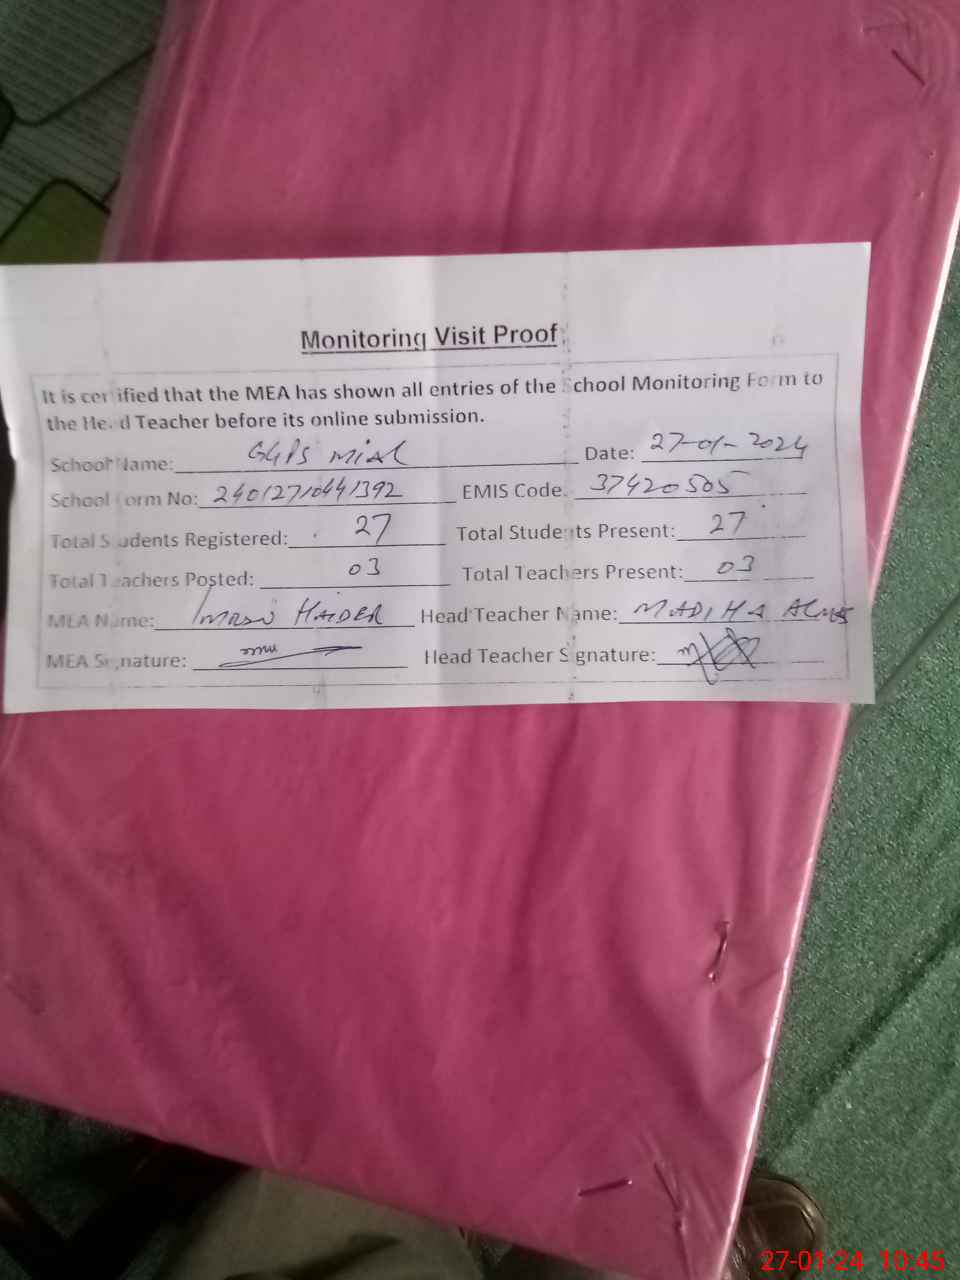 Monitoring Visit Proof
It is certified that the MEA has shown all entries of the School Monitoring Form to
the Head Teacher before its online submission.
School Name: GGPS Mial Date: 27-01-2024
School Form No: 24012710441392 EMIS Code. 37420505
Total Students Registered: 27 Total Students Present: 27
Total Teachers Posted: 03 Total Teachers Present: 03
MEA Name: IMRAN HAIDER Head Teacher Name: MADIHA
MEA Signature: Head Teacher Signature:
27-01-24 10:45